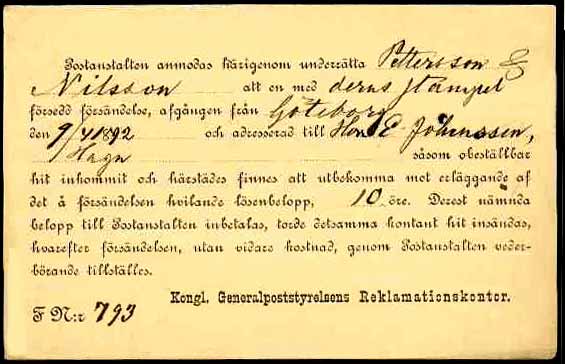 Postanstalten anmodas härigenom underrätta Pettersson &
Nilsson att en med deras stämpel
försedd försändelse, afgången från Göteborg
den 9/4 1892 och adresserad till Herr E. Johansson,
Haga såsom obeställbar
hit inkommit och härstädes finnes att utbekomma mot erläggande af
det å försändelsen hvilande lösenbelopp, 10 öre. Derest nämnda
belopp till Postanstalten inbetalas, torde detsamma kontant hit insändas,
hvarefter försändelsen, utan vidare kostnad, genom Postanstalten veder-
börande tillställes.
Kongl. Generalpoststyrelsens Reklamationskontor.
F N:r 793